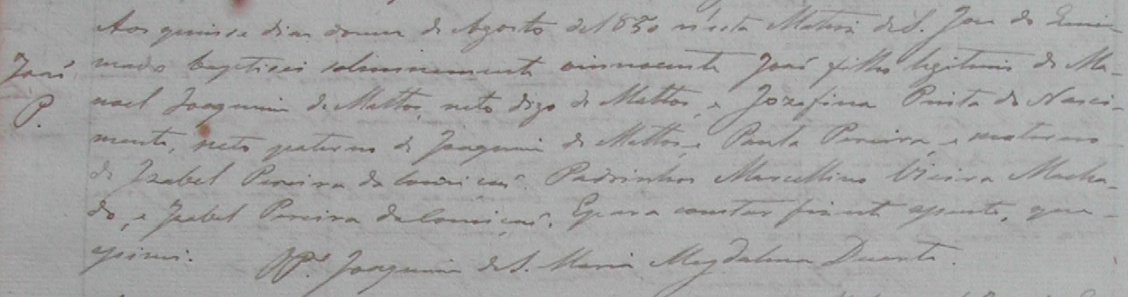 Aos quinse dias do mes de Agosto de 1850 nesta Matris de S. Joze do Quei-
mado baptisei solemnemente o innocente José filho legitimo de Ma-
José
noel Joaquim de Mattos, neto digo de Mattos, e Jozefina Pinta do Nasci-
P.
mento, neto paterno de Joaquim de Mattos, e Paula Pereira, e materno
de Izabel Pereira da Conceiçaõ. Padrinhos Marcellino Vieira Macha-
do, e Izabel Pereira da Conceiçaõ. E para constar fiz este assento, que
assinei.
O P.e Joaquim de S. Maria Magdalena Duarte.